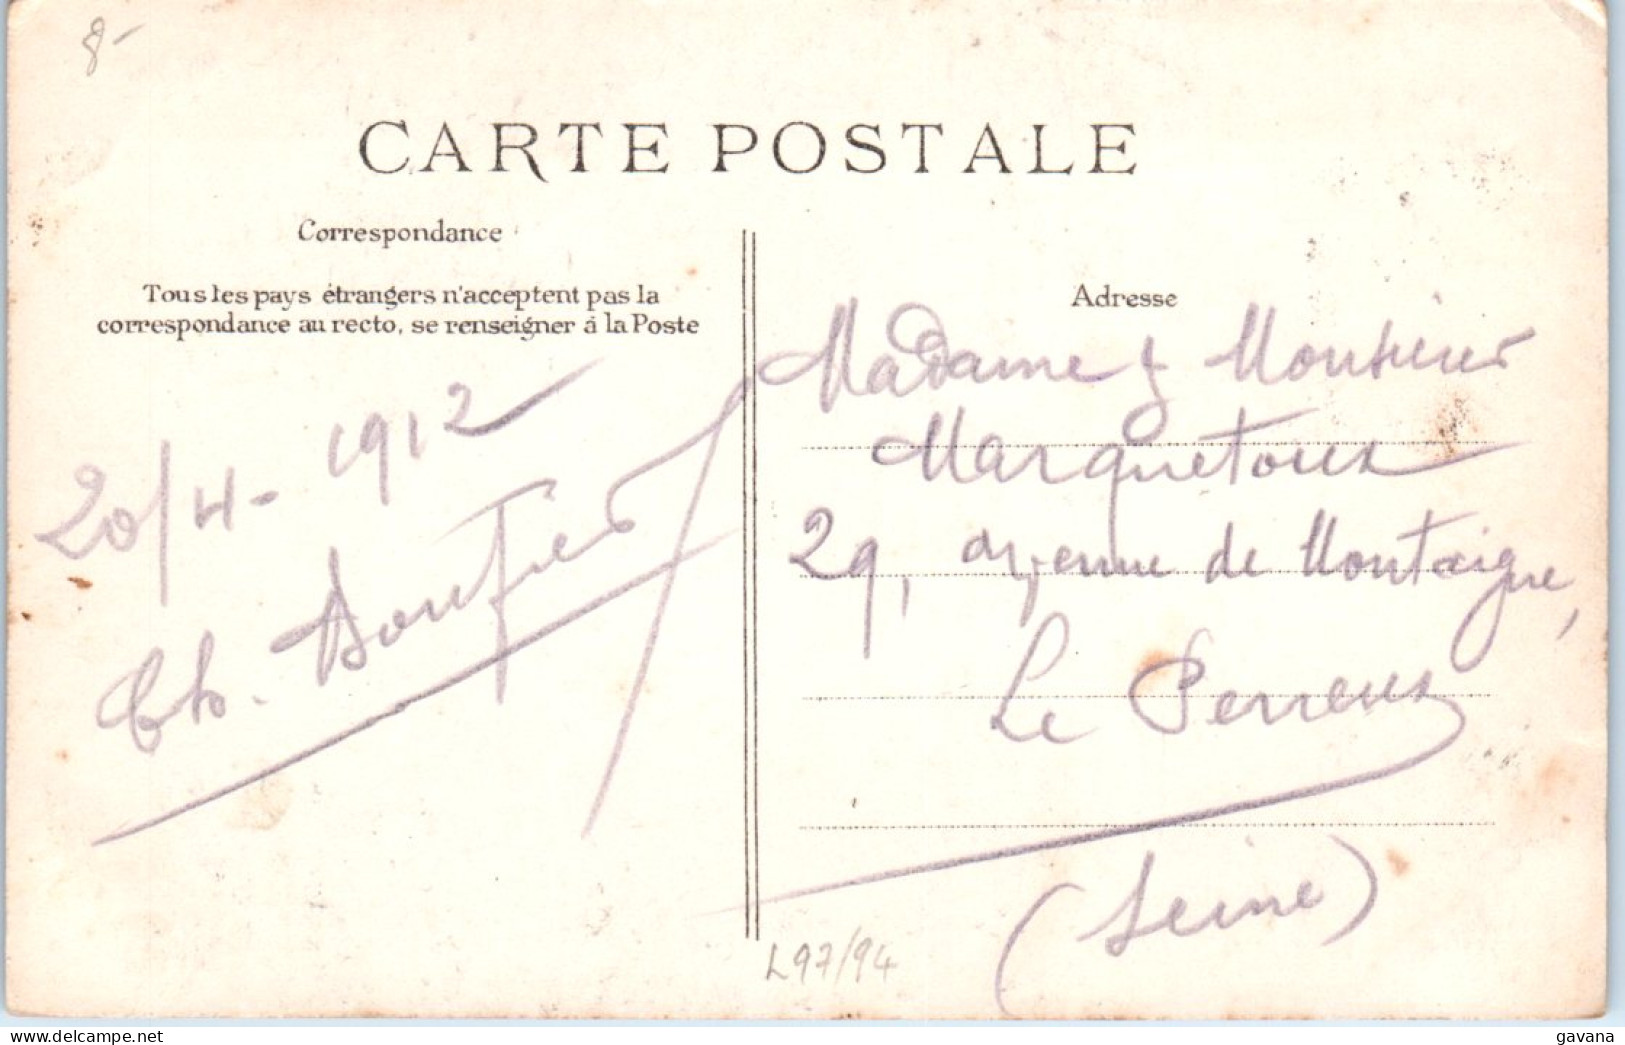 8-
CARTE POSTALE
Correspondance
Tous les pays étrangers n'acceptent pas la
correspondance au recto, se renseigner à la Poste
20/4-1912
Ch.
Adresse
Madame & Monsieur
Marquetoux
29, avenue de Montaigne,
Le Perreux
(Seine)
L97/94
gavana